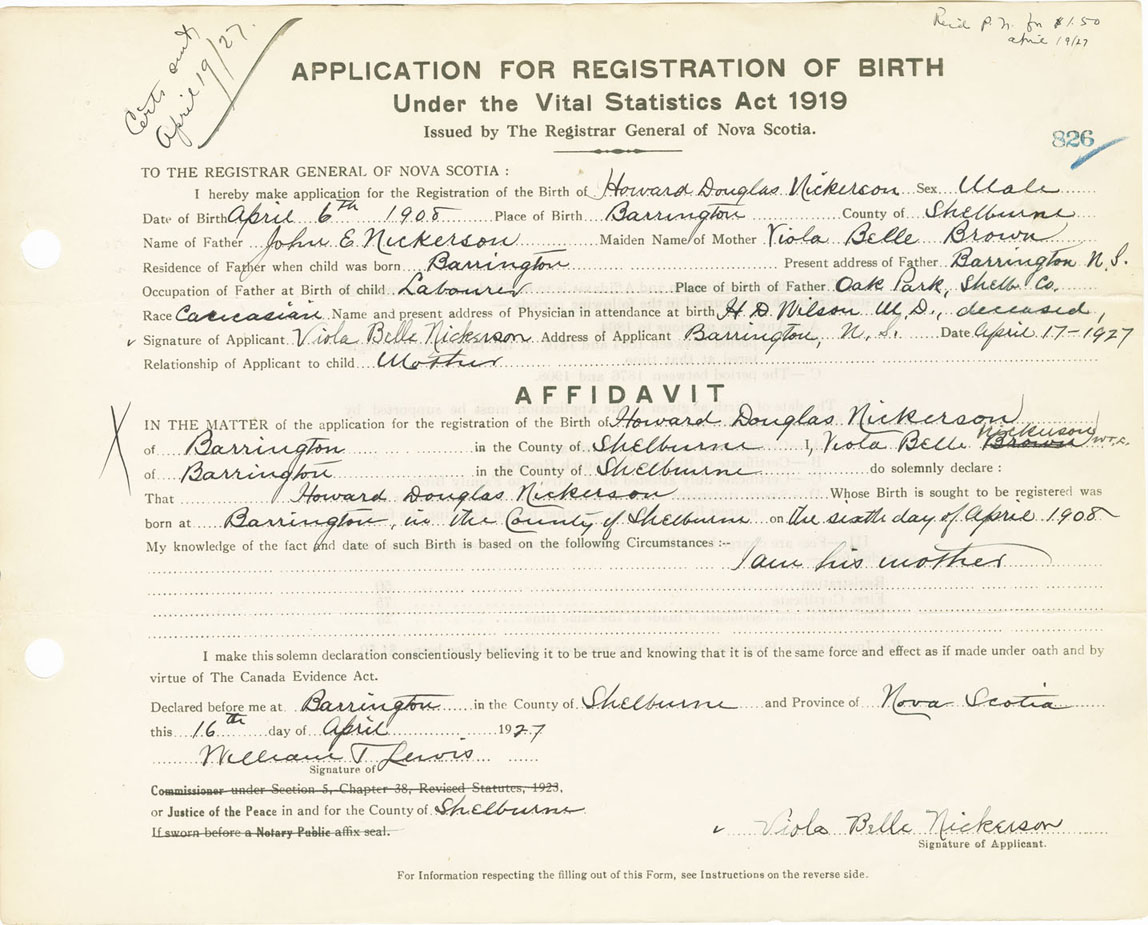 Certs sent
April 19/27.
Rec'd P.N. for $1.50
april 19/27
APPLICATION FOR REGISTRATION OF BIRTH
Under the Vital Statistics Act 1919
Issued by The Registrar General of Nova Scotia.
826
TO THE REGISTRAR GENERAL OF NOVA SCOTIA :
I hereby make application for the Registration of the Birth of Howard Douglas Nickerson Sex Male
Date of Birth April 6th 1908 Place of Birth Barrington County of Shelburne
Name of Father John E Nickerson Maiden Name of Mother Viola Belle Brown
Residence of Father when child was born Barrington Present address of Father Barrington N.S.
Occupation of Father at Birth of child Labourer Place of birth of Father Oak Park, Shelb. Co.
Race Caucasian Name and present address of Physician in attendance at birth H. D. Wilson M.D., deceased,
Signature of Applicant Viola Belle Nickerson Address of Applicant Barrington, N.S. Date April 17-1927
Relationship of Applicant to child Mother
AFFIDAVIT
IN THE MATTER of the application for the registration of the Birth of Howard Douglas Nickerson
of Barrington in the County of Shelburne I, Viola Belle Brown Nickerson W.T.L.
of Barrington in the County of Shelbourne do solemnly declare :
That Howard Douglas Nickerson Whose Birth is sought to be registered was
born at Barrington, in the County of Shelburne on the sixth day of April 1908
My knowledge of the fact and date of such Birth is based on the following Circumstances :--
I am his mother
I make this solemn declaration conscientiously believing it to be true and knowing that it is of the same force and effect as if made under oath and by
virtue of The Canada Evidence Act.
Declared before me at Barrington in the County of Shelburne and Province of Nova Scotia
this 16th day of April 1927
William T. Lewis
Signature of
Commissioner under Section 5, Chapter 38, Revised Statutes, 1923,
or Justice of the Peace in and for the County of Shelburne
If sworn before a Notary Public affix seal.
Viola Belle Nickerson
Signature of Applicant.
For Information respecting the filling out of this Form, see Instructions on the reverse side.